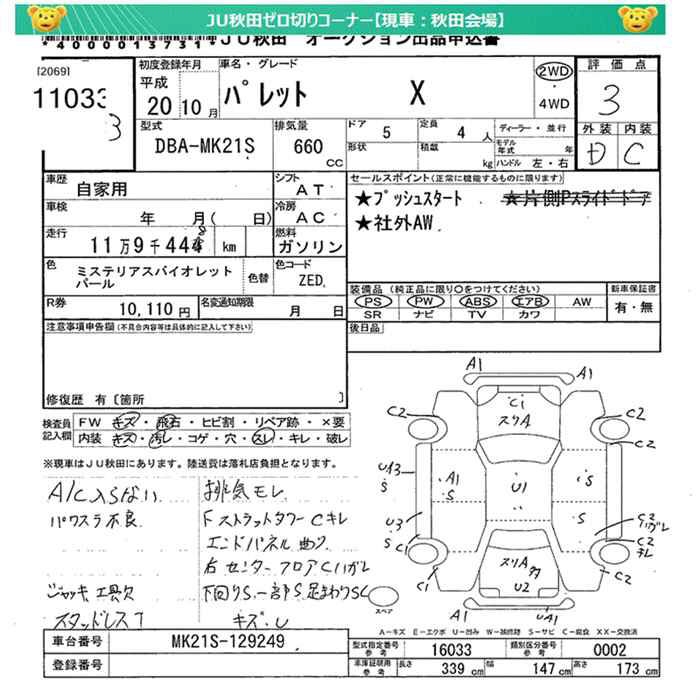 JU秋田ゼロ切りコーナー【現車：秋田会場】
*40000013731* JU秋田 オークション出品申込書
[2069]
11033
3
初度登録年月
平成
20 10 月
車名・グレード
パレット X
2WD
4WD
評価点
3
外装 内装
D C
型式
DBA-MK21S
排気量
660 CC
ドア 5
定員 4 人
形状
積載 kg
ディーラー・並行
モデル年式 年
ハンドル 左・右
車歴
自家用
シフト
AT
車検
年 月( 日)
冷房
AC
走行
11万9千444 8 km
燃料
ガソリン
色
ミステリアスバイオレット
パール
色替
色コード
ZED
R券
10,110 円
名変通知期限
月 日
セールスポイント(正常に機能するものに限ります)
★プッシュスタート ★片側Pスライドドア
★社外AW
装備品 (純正品に限り○をつけてください)
新車保証書
PS PW ABS エアB AW
SR ナビ TV カワ
有・無
後日品
注意事項申告欄(不具合内容等は具体的に記入して下さい)
修復歴 有〔箇所 〕
検査員
記入欄
FW キズ・飛石・ヒビ割・リペア跡・×要
内装 キズ・汚レ・コゲ・穴・スレ・キレ・破レ
※現車はJU秋田にあります。陸送費は落札店負担となります。
A/C入らない
パワステ不良
ジャッキ工具欠
スタッドレス
排気モレ
FストラットタワーCキレ
エンドパネル曲り
右センターフロアCハガレ
下回りS 一部S 足まわりSC
キズ・U
A1
A1
C1
スリA
C2
C2
UA3
S
A1
S
U1
S
U3
S
S
C2
ハガレ
C1
C2
キレ
スリA
U2
C1
C2
A1
UA1
スペア
A-キズ E-エクボ U-凹み W-補修跡 S-サビ C-腐食 XX-交換済
車台番号
MK21S-129249
登録番号
型式指定番号
参考
16033
類別区分番号
参考
0002
車庫証明用
参考
長さ 339 cm
幅 147 cm
高さ 173 cm